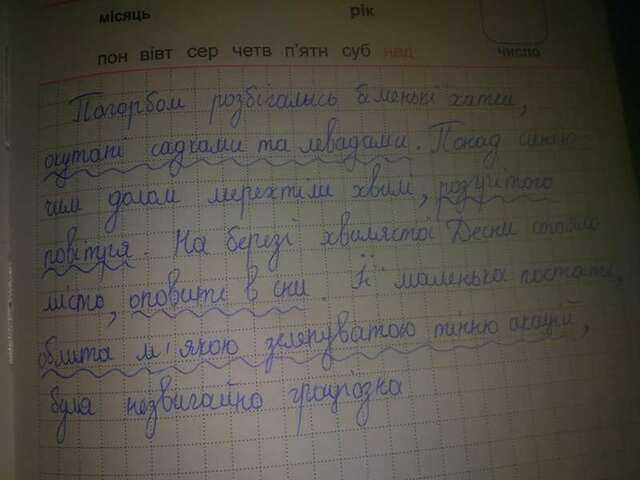 місяць рік
пон вівт сер четв п'ятн суб нед
число
Пагорбом розбігались біленькі хатки,
окутані садками та левадами. Понад синію
чим долом мерехтіли хвилі, розігрітого
повітря. На березі хвилястої Десни стояло
місто, оповите в сни. Її маленька постать,
облита м'якою зеленуватою тінню акацій,
була незвичайно граціозна